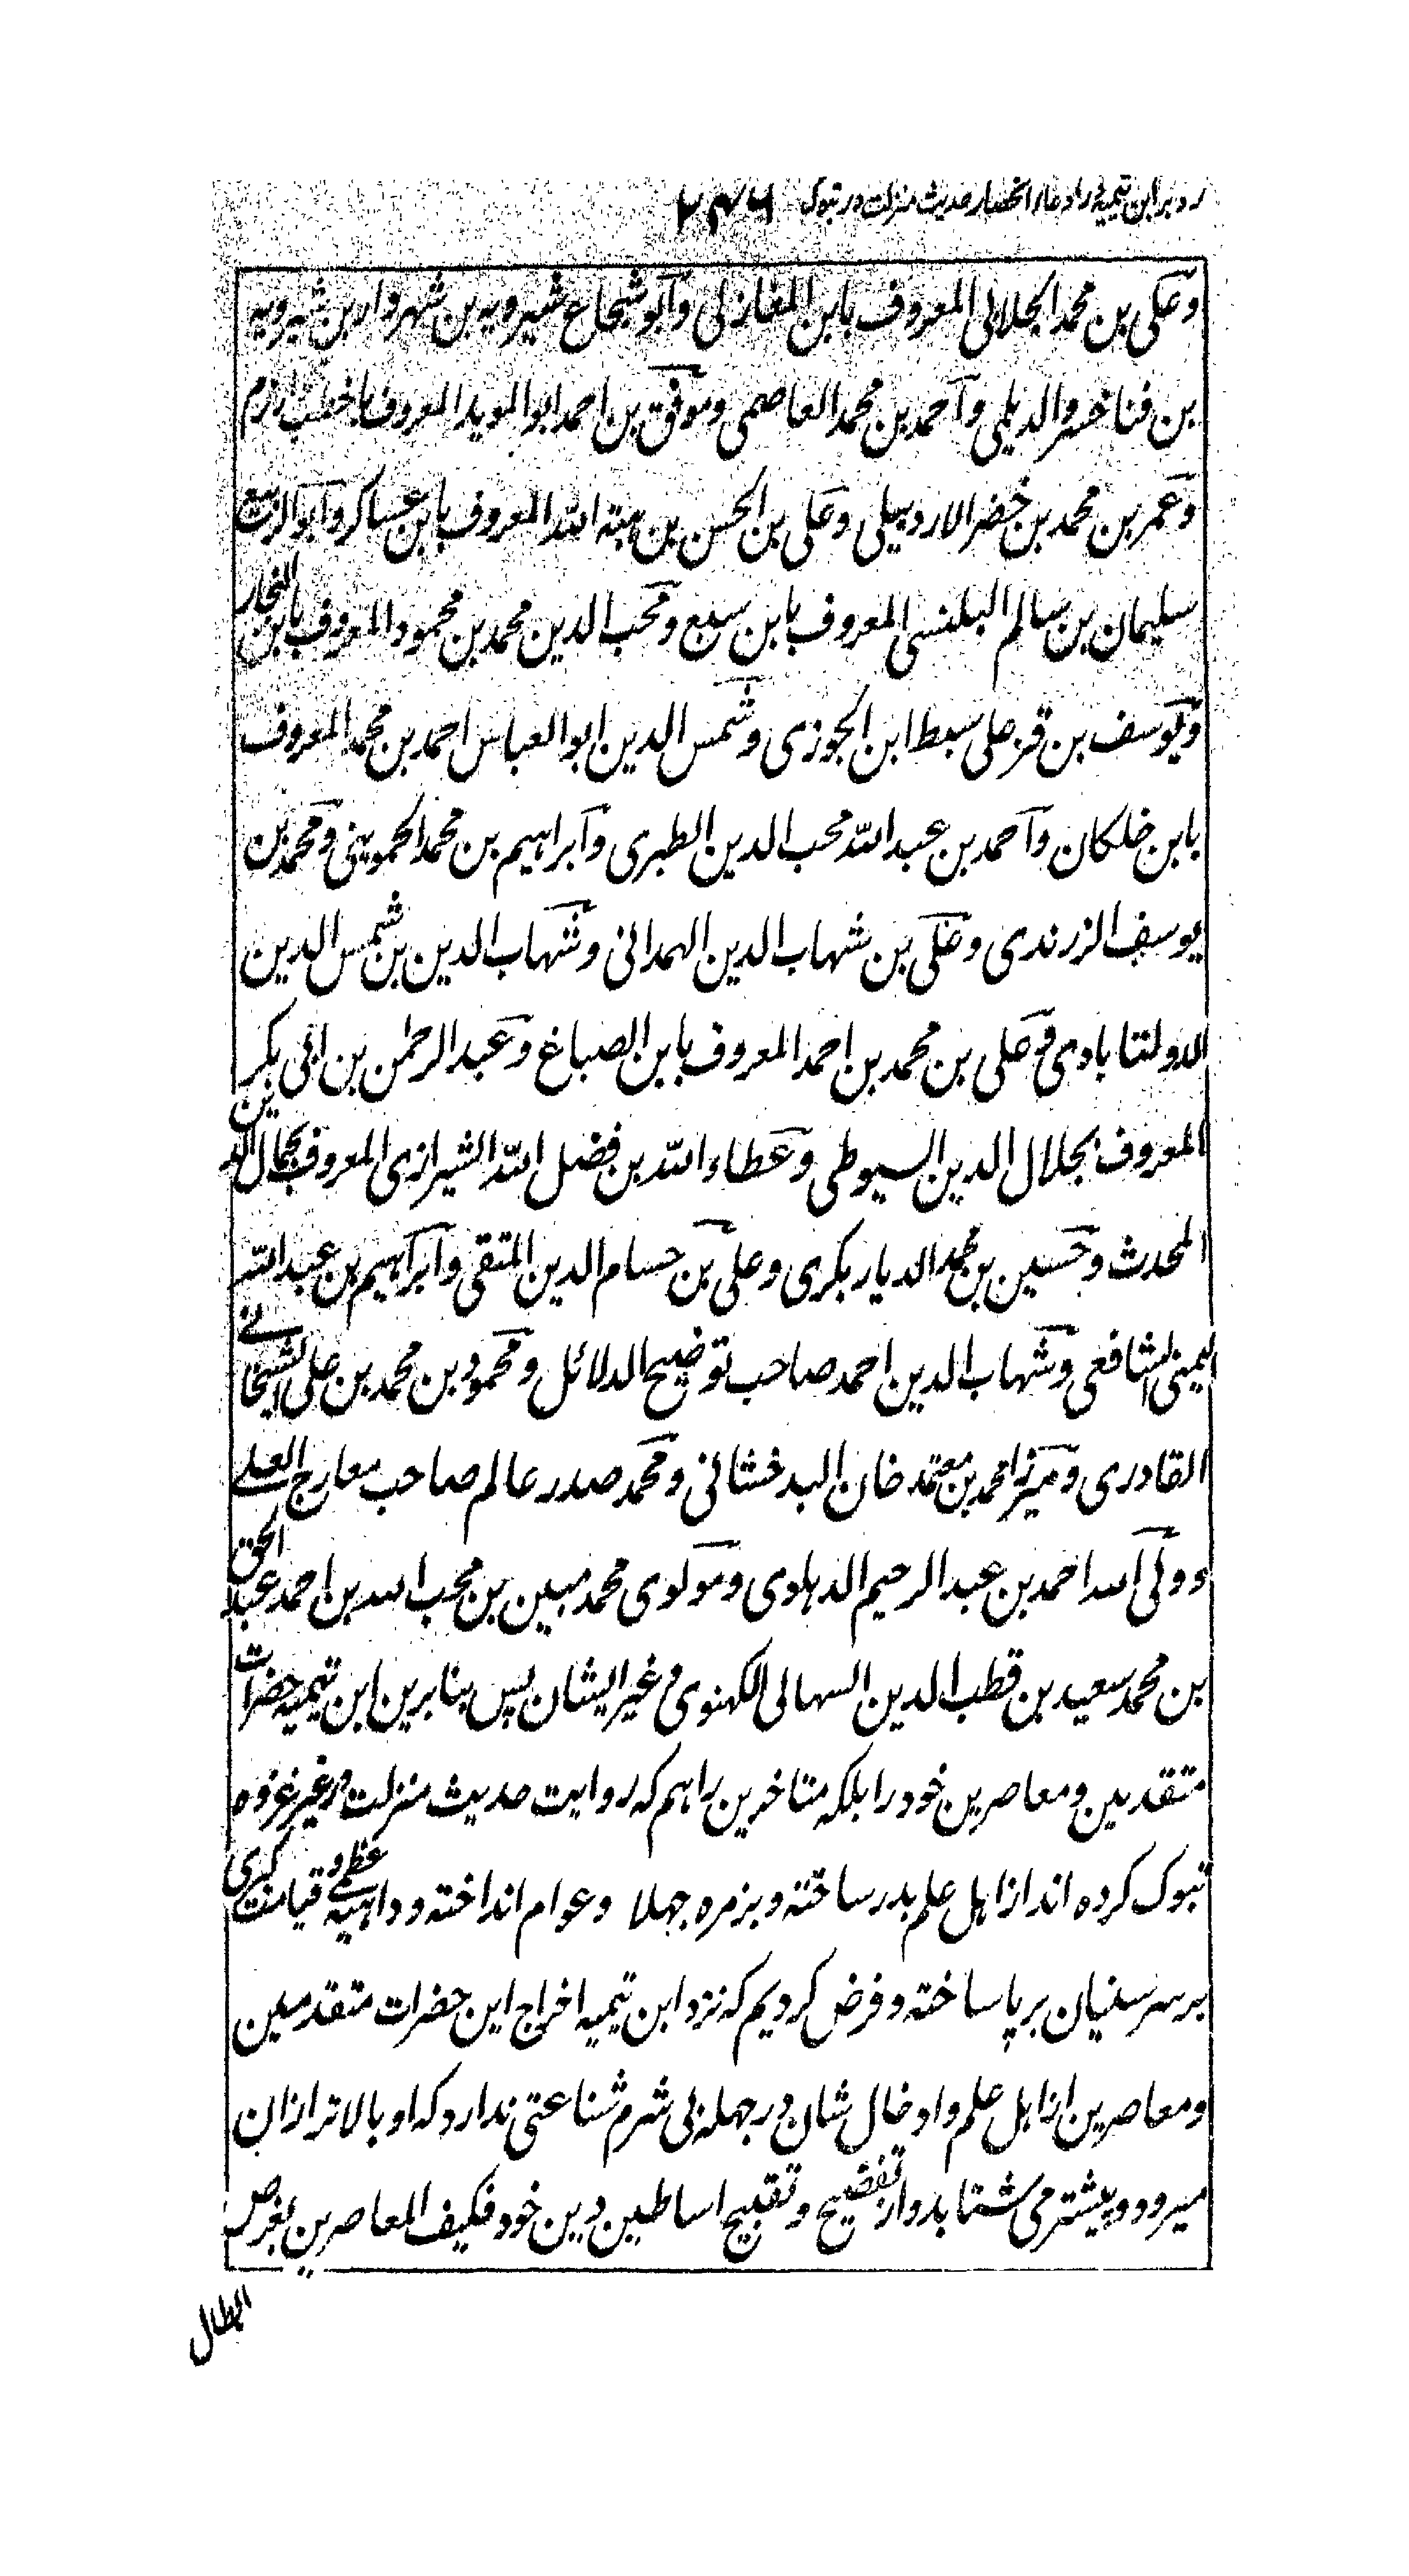 رد بر ابن تیمیه در ادعاء انحصار حدیث منزلت در تبوک ۲۴۶
وعلی بن محمد الجلابی المعروف بابن المغازلی وابو شجاع شیرویه بن شهردار بن شیرویه
بن فناخسرو الدیلمی واحمد بن محمد العاصمی وموفق بن احمد ابو الموید المعروف باخطب خوارزم
وعمر بن محمد بن خضر الاردبیلی وعلی بن الحسن بن هبة الله المعروف بابن عساکر وابو الربیع
سلیمان بن سالم البلنسی المعروف بابن سبع ومحب الدین محمد بن محمود المعروف بابن النجار
ویوسف بن قزعلی سبط ابن الجوزی وشمس الدین ابو العباس احمد بن محمد المعروف
بابن خلکان واحمد بن عبد الله محب الدین الطبری وابراهیم بن محمد الحموینی ومحمد بن
یوسف الزرندی وعلی بن شهاب الدین الهمدانی وشهاب الدین بن شمس الدین
الدولتابادی وعلی بن محمد بن احمد المعروف بابن الصباغ وعبد الرحمن بن ابی بکر
المعروف بجلال الدین السیوطی وعطاء الله بن فضل الله الشیرازی المعروف بجمال الدین
المحدث وحسین بن محمد الدیاربکری وعلی بن حسام الدین المتقی وابراهیم بن عبد الله
الیمنی الشافعی وشهاب الدین احمد صاحب توضیح الدلائل ومحمود بن محمد بن علی الشیخانی
القادری ومیرزا محمد بن معتمد خان البدخشانی ومحمد صدر عالم صاحب معارج العلی
وولی الله احمد بن عبد الرحیم الدهلوی ومولوی محمد مبین بن محب الله بن احمد عبد الحق
بن محمد سعید بن قطب الدین السهالی الکهنوی وغیر ایشان پس بنابرین ابن تیمیه حضرات
متقدمین ومعاصرین خود را بلکه متاخرین را هم که روایت حدیث منزلت در غیر غزوه
تبوک کرده اند از اهل علم بدر ساخته وبزمره جهلا وعوام انداخته وداهیه عظمی وقیامت کبری
بر سر سنیان برپا ساخته وفرض کردیم که نزد ابن تیمیه اخراج این حضرات متقدمین
ومعاصرین از اهل علم وادخال شان در جهله بی شرم شناعتی ندارد که او بالاتر ازان
میرود و پیشتر می شتابد در تفضیح وتقبیح اساطین دین خود فکیف المعاصرین بغرض
ابطال